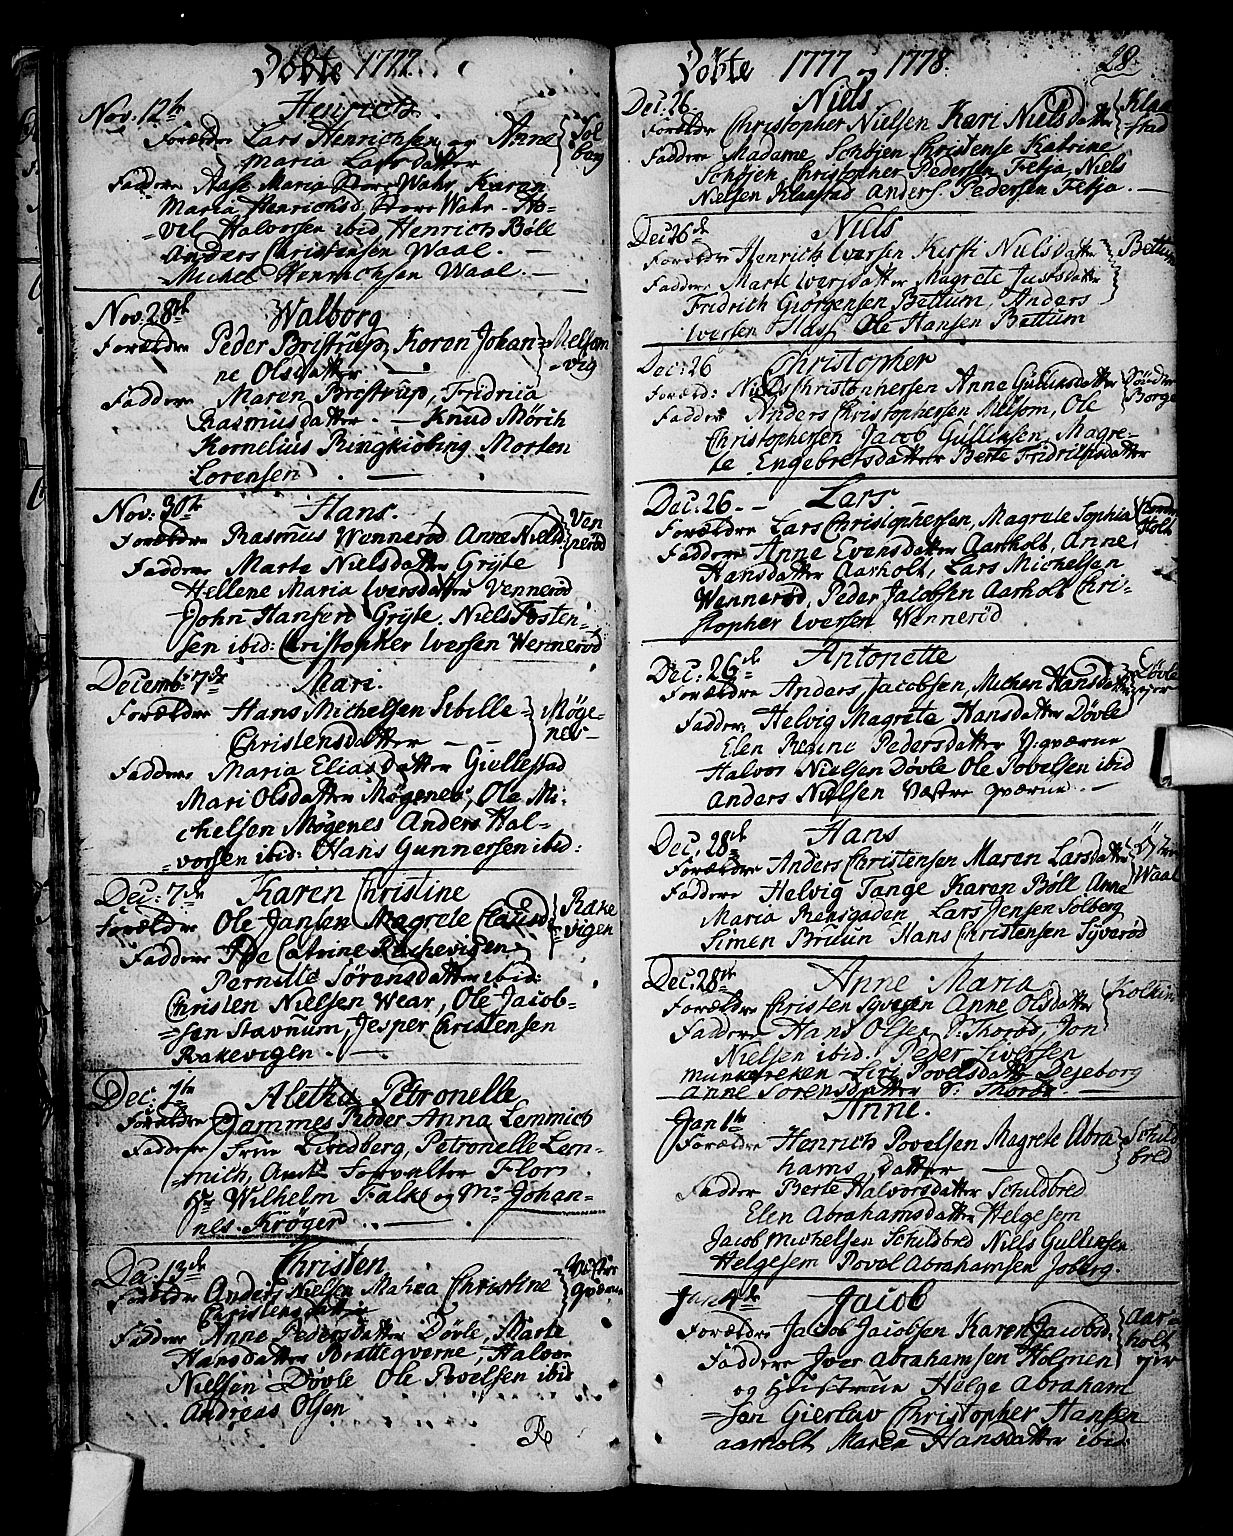 Döbte 1777.
Nov: 12te Henrich.
Forældre Lars Henrichsen og Anne Sol
Maria Larsdatter berg
Faddere Aase Maria Store Wahr, Karen
Maria Henrichsd. Store Wahr. Ho-
-vel Halvorsen ibid, Henrich Böll
Anders Christensen Waal. —
Michel Henrichsen Waal. —
Nov: 28de Walborg
Forældre Peder Brostrup, Karen Johan= Melsom
ne Olsdatter — -vig
Faddere Maren Brostrup, Fridricia
Rasmusdatter. — Knud Mörch
Kornelius Ringkiobing Morten
Lorensen. —
Nov: 30te Hans.
Forældre Rasmus Wennerød Anne Nielsd. Ven
nerød
Faddere Marte Nielsdatter Gryte
Hellene Maria Iversdatter Vennerød
John Hansen Gryte. Niels Josten-
sen ibid: Christopher Iversen Wennerød
Decemb: 7de Mari.
Forældre Hans Michelsen Sibille= Møge-
Christensdatter — — nes —
Faddere Maria Eliasdatter Giellestad
Mari Olsdatter Møgenes, Ole Mi-
chelsen Møgenes Anders Hal-
-vorsen ibid: Hans Gunnersen ibid:
Dec: 7de Karen Christine
Forældre Ole Jansen Magrete Clausd Rake
vigen
Faddere Ide Catrine Rachevigen
Pernille Sörensdatter ibid:
Christen Nielsen Wear, Ole Jacob-
=sen Stavnum, Jesper Christensen
Rakevigen. —
Dec: 7de Aletha Petronelle
Forældre Dammes Röder Anna Lemmich
Faddere Frue Lindberg, Petronelle Lem-
-mich, Amts Forvalter Flor.
Hr Wilhelm Falke og Mr Johan-
nes Kröger. —
Dec: 13de Christen
Forældre Anders Nielsen Maria Christine Vestre
Christensdatter Qværne
Faddere Anne Pedersdatter Døvle, Marte
Hansdatter Bratteqverne, Halvor
Nielsen Døvle Ole Povelsen ibid
Andreas Olsen
Döbte 1777 og 1778. 28.
Dec: 26. Niels
Forældre Christopher Nielsen Kari Nielsdatter Klaa
stad
Faddere Madame Schöjen Christense Katrine
Schöjen, Christopher Pedersen Fetja, Niels
Nielsen Klaastad Anders Pedersen Fetja. —
Dec 26de Niels
Forældre Henrich Iversen Kirsti Nielsdatter Bettum
Faddere Marte Iversdatter Magrete Justsdatter
Fridrich Giörgensen Bettum, Anders
Iversen Hass Ole Hansen Bettum
Dec: 26 Christopher
Foræld: Niels Christophersen Anne Gulliksdatter Söndre
Borge
Faddere Anders Christophersen Melsom, Ole
Christophersen Jacob Gullichsen, Magre-
te Engebretsdatter Berte Fridrichsdatter
Dec. 26. — Lars —
Forældre Lars Christophersen, Magrete Sophia
Holt
Faddere Anne Evensdatter Aarholt, Anne
Hansdatter Aarholt, Lars Michelsen
Wennerød, Peder Jacobsen Aarholt Chri-
stopher Iversen Wennerød
Dec: 26de Antonette
Forældre Anders Jacobsen, Michen Hansdatter Døvle
ejer
Faddere Helvig Magrete Hansdatter Døvle
Elen Pedersdatter V: qværne
Halvor Nielsen Døvle Ole Povelsen ibid
Anders Nielsen Væstre qværne. —
Dec. 28de Hans
Forældre Anders Christensen Maren Larsdatter
Waal
Faddere Helvig Tange Karen Böll Anne
Maria Lars Jensen Solberg
Simen Bruun Hans Christensen Syverød
Dec. 28de Anne Maria
Forældre Christen Anne Olsdatter
Faddere Hans Olsen S: Thorød, Jon
Nielsen ibid. Peder Siversen
Munkereken Siri Povelsdatter Bejeborg
Anne Sorensdatter S: Thorød
Jan 1te Anne.
Forældre Henrich Povelsen Magrete Abra Schild
hams datter — bred
Faddere Berte Halvorsdatter Schildbred
Elen Abrahamsdatter Helgesem
Jacob Michelsen Schildbred Niels Gullicsen
Helgesem Povel Abrahamsen Joberg.
Jan 4de Jacob
Forældre Jacob Jacobsen Karen Jacobsd. Aar-
holt
Faddere Iver Abrahamsen Holmen ejer
og Hustrue Helge Abraham
=sen Gierlav Christopher Hansen
Aarholt Maren Hansdatter ibid: